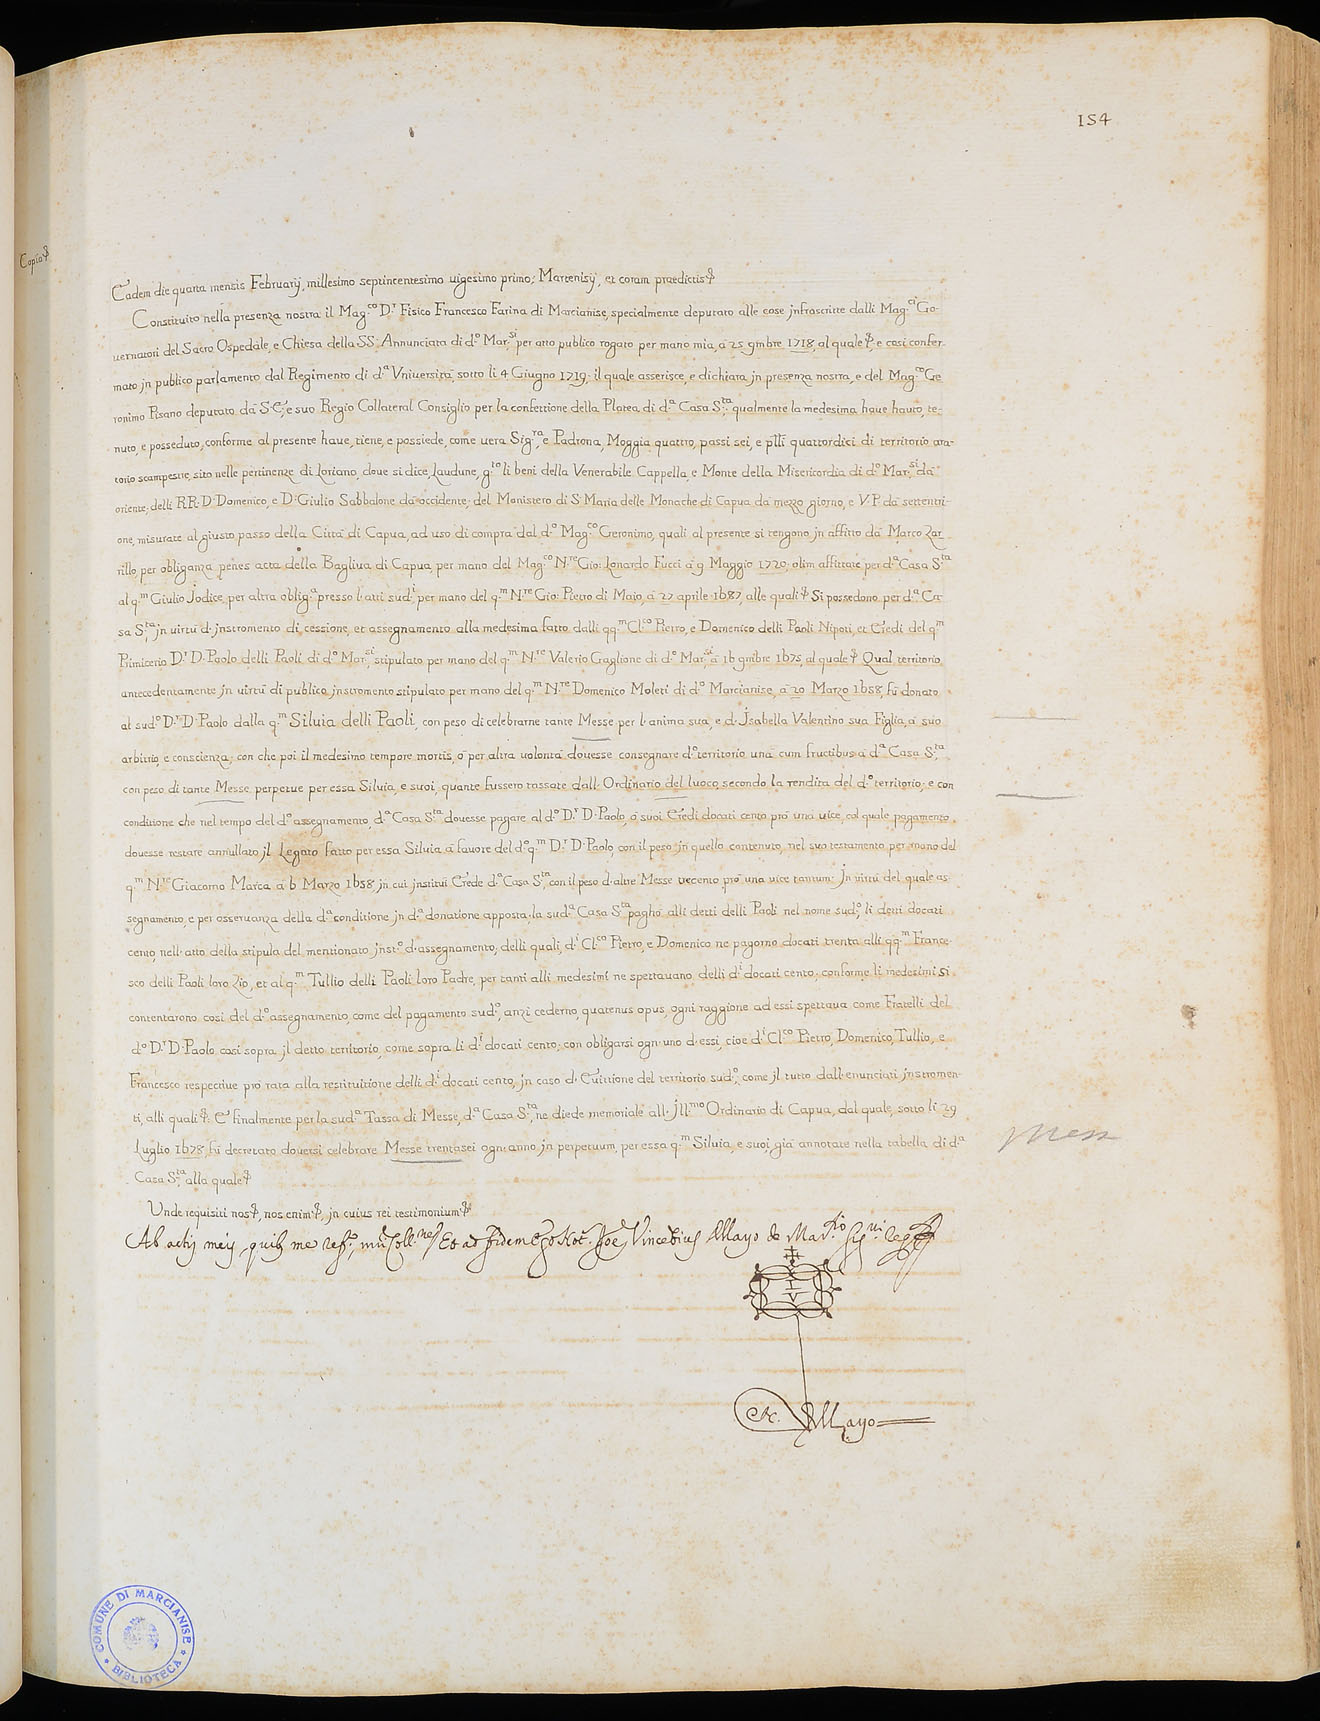 154
Copia
Eadem die quarta mensis Februarij, millesimo septincentesimo uigesimo primo; Martenisij, et coram praedictis
Constituito nella presenza nostra il Mag.co D.r Fisico Francesco Farina di Marcianise, specialmente deputato alle cose jnfrascritte dalli Mag.ci Go-
uernatori del Sacro Ospedale, e Chiesa della SS. Annunciata di d.o Mar.si per atto publico rogato per mano mia, à 25 9mbre 1718, al quale, e così confer-
mato jn publico parlamento dal Regimento di d.a Vniuersità, sotto li 4 Giugno 1719; il quale asserisce, e dichiara jn presenza nostra, e del Mag.co Ge
ronimo Pisano deputato dà S.E., e suo Regio Collateral Consiglio per la confettione della Platea di d.a Casa S.ta, qualmente la medesima haue hauto, te-
nuto, e posseduto, conforme al presente haue, tiene, e possiede, come uera Sig.ra, e Padrona, Moggia quattro, passi sei, e p̃lli quattordici di territorio ara-
torio scampestre, sito nelle pertinenze di Loriano, doue si dice, Laudune, g.to li beni della Venerabile Cappella, e Monte della Misericordia di d.o Mar.si dà
oriente; delli RR. D. Domenico, e D. Giulio Sabbalone dà occidente; del Monistero di S. Maria delle Monache di Capua dà mezzo giorno, e V.P. dà settentri
one, misurate al giusto passo della Città di Capua, ad uso di compra dal d.o Mag.co Geronimo, quali al presente si tengono jn affitto dà Marco Zar
rillo, per obliganza penes acta della Bagliua di Capua, per mano del Mag.co N.re Gio: Lonardo Fucci à 9 Maggio 1720; olim affittate per d.a Casa S.ta
al q.m Giulio Jodice, per altra oblig.a presso l'atti sud.i, per mano del q.m N.re Gio: Pietro di Maio, à 27 aprile 1687, alle quali Si possedono per d.a Ca
sa S.ta, jn uirtù d'jnstromento di cessione, et assegnamento alla medesima fatto dalli qq.m Cl.co Pietro, e Domenico delli Paoli Nipoti, et Eredi del q.m
Primicerio D.r D. Paolo delli Paoli di d.o Mar.si, stipulato per mano del q.m N.re Valerio Gaglione di d.o Mar.si à 16 9mbre 1675, al quale Qual territorio
antecedentemente jn uirtù di publico jnstromento stipulato per mano del q.m N.re Domenico Moleti di d.o Marcianise, à 20 Marzo 1658, fù donato
al sud.o D.r D. Paolo dalla q.m Siluia delli Paoli, con peso di celebrarne tante Messe per l'anima sua, e d'Jsabella Valentino sua Figlia, à suo
arbitrio, e conscienza; con che poi il medesimo tempore mortis, ò per altra uolontà douesse consegnare d.o territorio una cum fructibus à d.a Casa S.ta,
con peso di tante Messe perpetue per essa Siluia, e suoi, quante fussero tassate dall'Ordinario del luoco, secondo la rendita del d.o territorio; e con
conditione che nel tempo del d.o assegnamento, d.a Casa S.ta douesse pagare al d.o D.r D. Paolo, ò suoi Eredi docati cento pro una uice, col quale pagamento
douesse restare annullato jl Legato fatto per essa Siluia à fauore del d.o q.m D.r D. Paolo, con il peso jn quello contenuto, nel suo testamento per mano del
q.m N.re Giacomo Marca à 6 Marzo 1658 jn cui jnstituì Erede d.a Casa S.ta, con il peso d'altre Messe trecento prò una uice tantum. Jn uirtù del quale as-
segnamento, e per osseruanza della d.a conditione jn d.a donatione apposta, la sud.a Casa S.ta paghò alli detti delli Paoli nel nome sud.o, li detti docati
cento, nell'atto della stipula del mentionato jnst.o d'assegnamento; delli quali, d.i Cl.co Pietro, e Domenico ne pagorno docati trenta alli qq.m France-
sco delli Paoli loro Zio, et al q.m Tullio delli Paoli loro Padre, per tanti alli medesimi ne spettauano delli d.i docati cento; conforme li medesimi si
contentarono così del d.o assegnamento, come del pagamento sud.o, anzi cederno, quatenus opus, ogni raggione ad essi spettaua come Fratelli del
d.o D.r D. Paolo, così sopra jl detto territorio, come sopra li d.i docati cento; con obligarsi ogn'uno d'essi, cioè d.i Cl.co Pietro, Domenico, Tullio, e
Francesco respectiue prò rata alla restituitione delli d.i docati cento, jn caso d'Euittione del territorio sud.o, come jl tutto dall'enunciati jnstromen-
ti, alli quali. E finalmente per la sud.a Tassa di Messe, d.a Casa S.ta, ne diede memoriale all'Jll.mo Ordinario di Capua, dal quale, sotto li 29
Luglio 1678, fù decretato douersi celebrare Messe trentasei ogni anno jn perpetuum, per essa q.m Siluia, e suoi, già annotate nella tabella di d.a
Casa S.ta alla quale
Mess
Unde requisiti nos, nos enim, jn cuius rei testimonium
Ab actis meis, quib. me ref.o, Et ad fidem Ego Not. Vincentius Mayo de Mar.
I
V
Mayo
COMUNE DI MARCIANISE
BIBLIOTECA